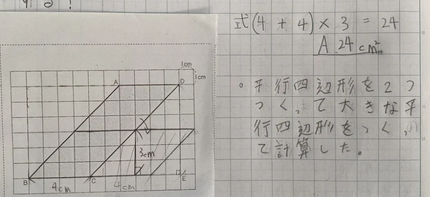 式(4 + 4) × 3 = 24
A 24cm²
○平行四辺形を2つ
つくって大きな平
行四辺形をつくっ
て計算した。
1cm
1cm
A
D
3cm
B
4cm
C
4cm
E